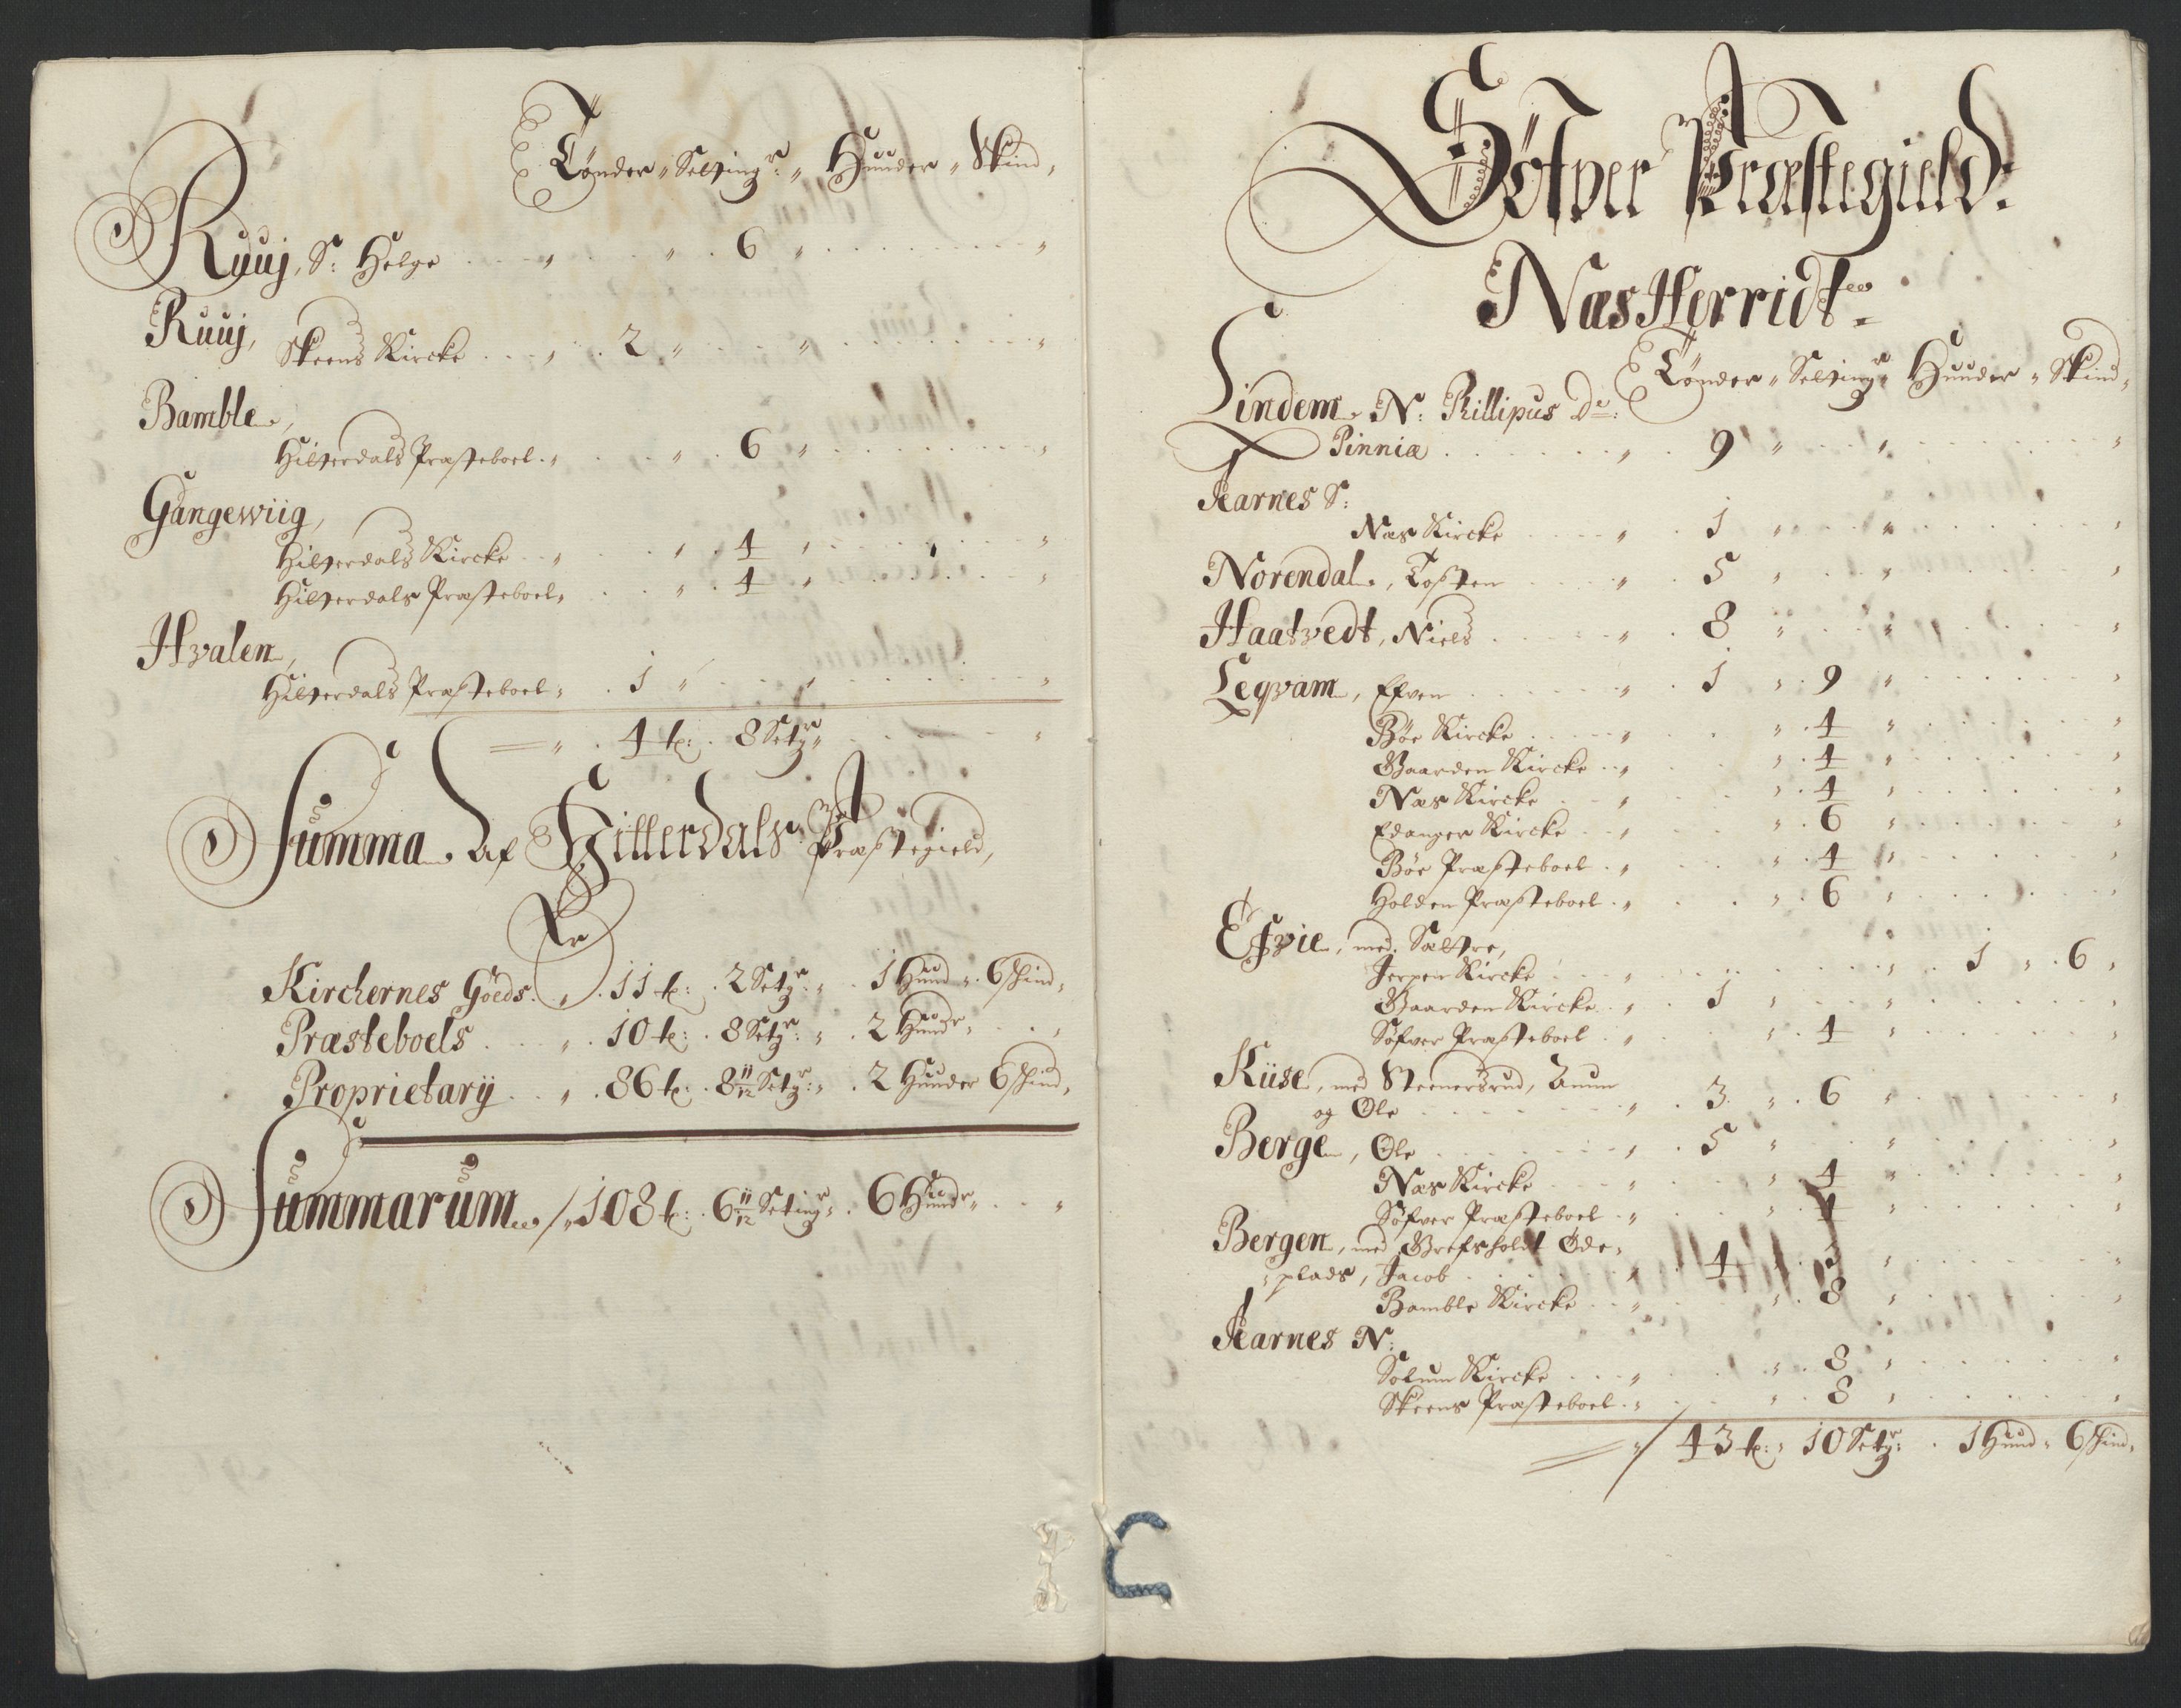 Tønder " Setting.r: " Huuder " Skind "
Ruuj, S: Helge " " 6 " "
Ruuj,
Skeens Kircke " 2 " " "
Bamble,
Hitterdals Præsteboel " " 6 " "
Gangewiig,
Hitterdals Kircke " " 4 " "
Hitterdals Præsteboel " " 4 " "
Hvalen,
Hitterdals Præsteboel " 1 " " "
" 4 t: 8 Setgr " "
Summa Af Hitterdals Præstegield,
Er
Kirchernes Goeds " 11 t: 2 Setgr: " 1 Hund " 6 skind "
Præsteboels " 10 t: 8 Setgr: " 2 Hundr " "
Proprietarÿ " 86 t: 8 11/12 Setgr: " 2 Huuder 6 skind "
Summarum / " 108 t: 6 11/12 Setingr " 6 Hundr " "
Søfver Præstegield:
Næs Herridt
Tønder " Settingr " Huuder " Skind "
Lindem N: Phillipus De:
Pinniæ " 9 " " "
Aarnes S:
Næs Kircke " 1 " " "
Norendal, Tosten " 5 " " "
Haatvedt, Niels " 8 " " "
Leqvam, Efven " 1 " 9 " "
Bøe Kircke " " 4 " "
Gaarden Kircke " " 4 " "
Næs Kircke " " 4 " "
Edanger Kircke " " 6 " "
Bøe Præsteboel " " 4 " "
Holden Præsteboel " " 6 " "
Efvie, med Sættre,
Jerpen Kircke " " 1 " 6 "
Gaarden Kircke " 1 " " "
Søfver Præsteboel " " 4 " "
Kiise, med Steenersrud, Anun
og Ole " 3 " 6 " "
Berge, Ole " 5 " " "
Næs Kircke " " 4 " "
Søfver Præsteboel " " 4 " "
Bergen, med Grefsholdt Øde "
" plads, Jacob " 4 " 3 " "
Bamble Kircke " " 8 " "
Aarnes N:
Solum Kircke " " 8 " "
Skeens Præsteboel " " 8 " "
" / 43 t: " 10 Setgr: 1 Hund " 6 skind "